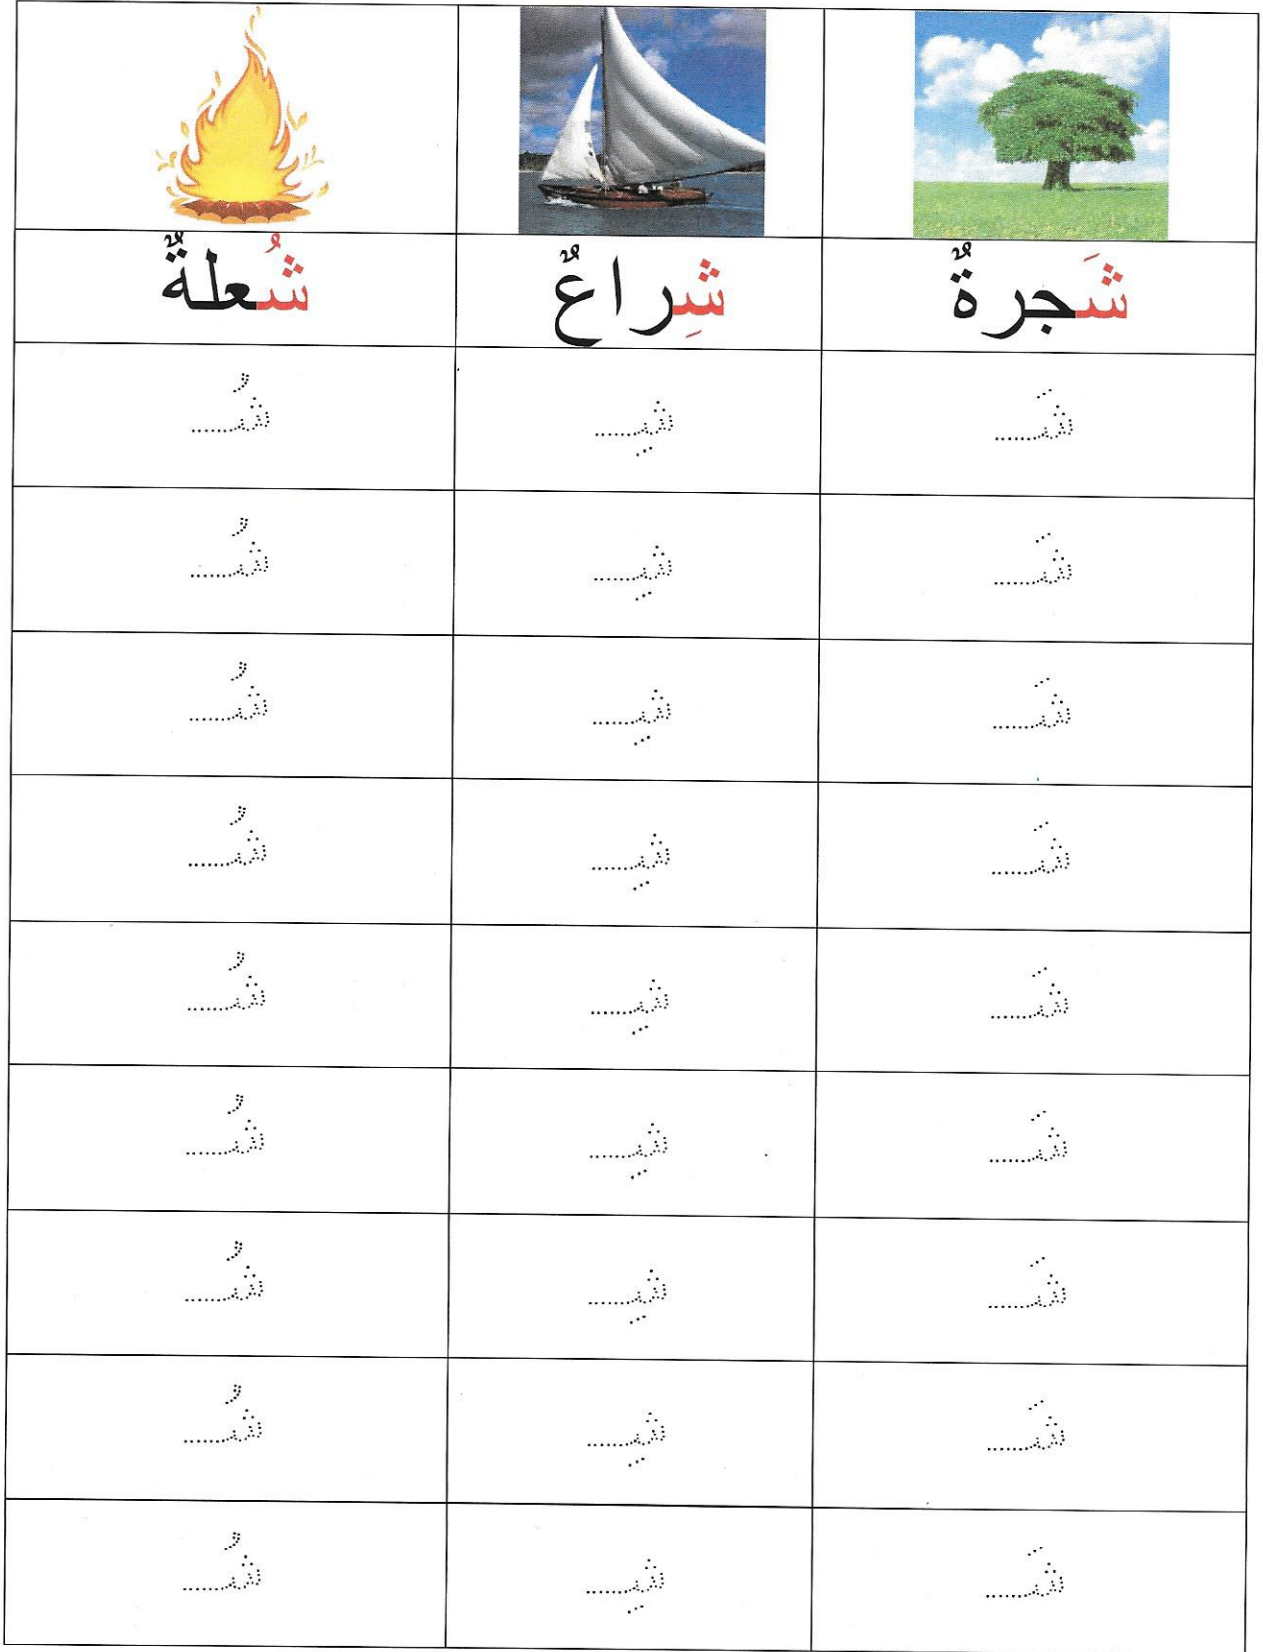 شَجرةٌ شِراعٌ شُعلةٌ
شَـ شِـ شُـ
شَـ شِـ شُـ
شَـ شِـ شُـ
شَـ شِـ شُـ
شَـ شِـ شُـ
شَـ شِـ شُـ
شَـ شِـ شُـ
شَـ شِـ شُـ
شَـ شِـ شُـ